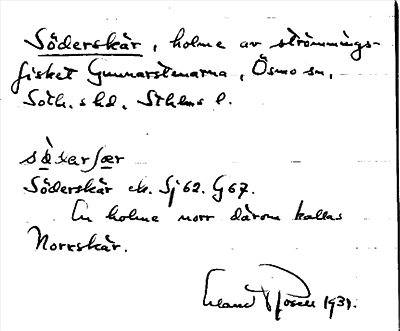 Söderskär, holme av strömmings-
fisket Gunnarstenarna, Ösmo sn,
Soth. s hd, Sthlms l.
Söderskär ek. Sj 62. G 67.
En holme norr därom kallas
Norrskär.
Erland Rosell 1939.